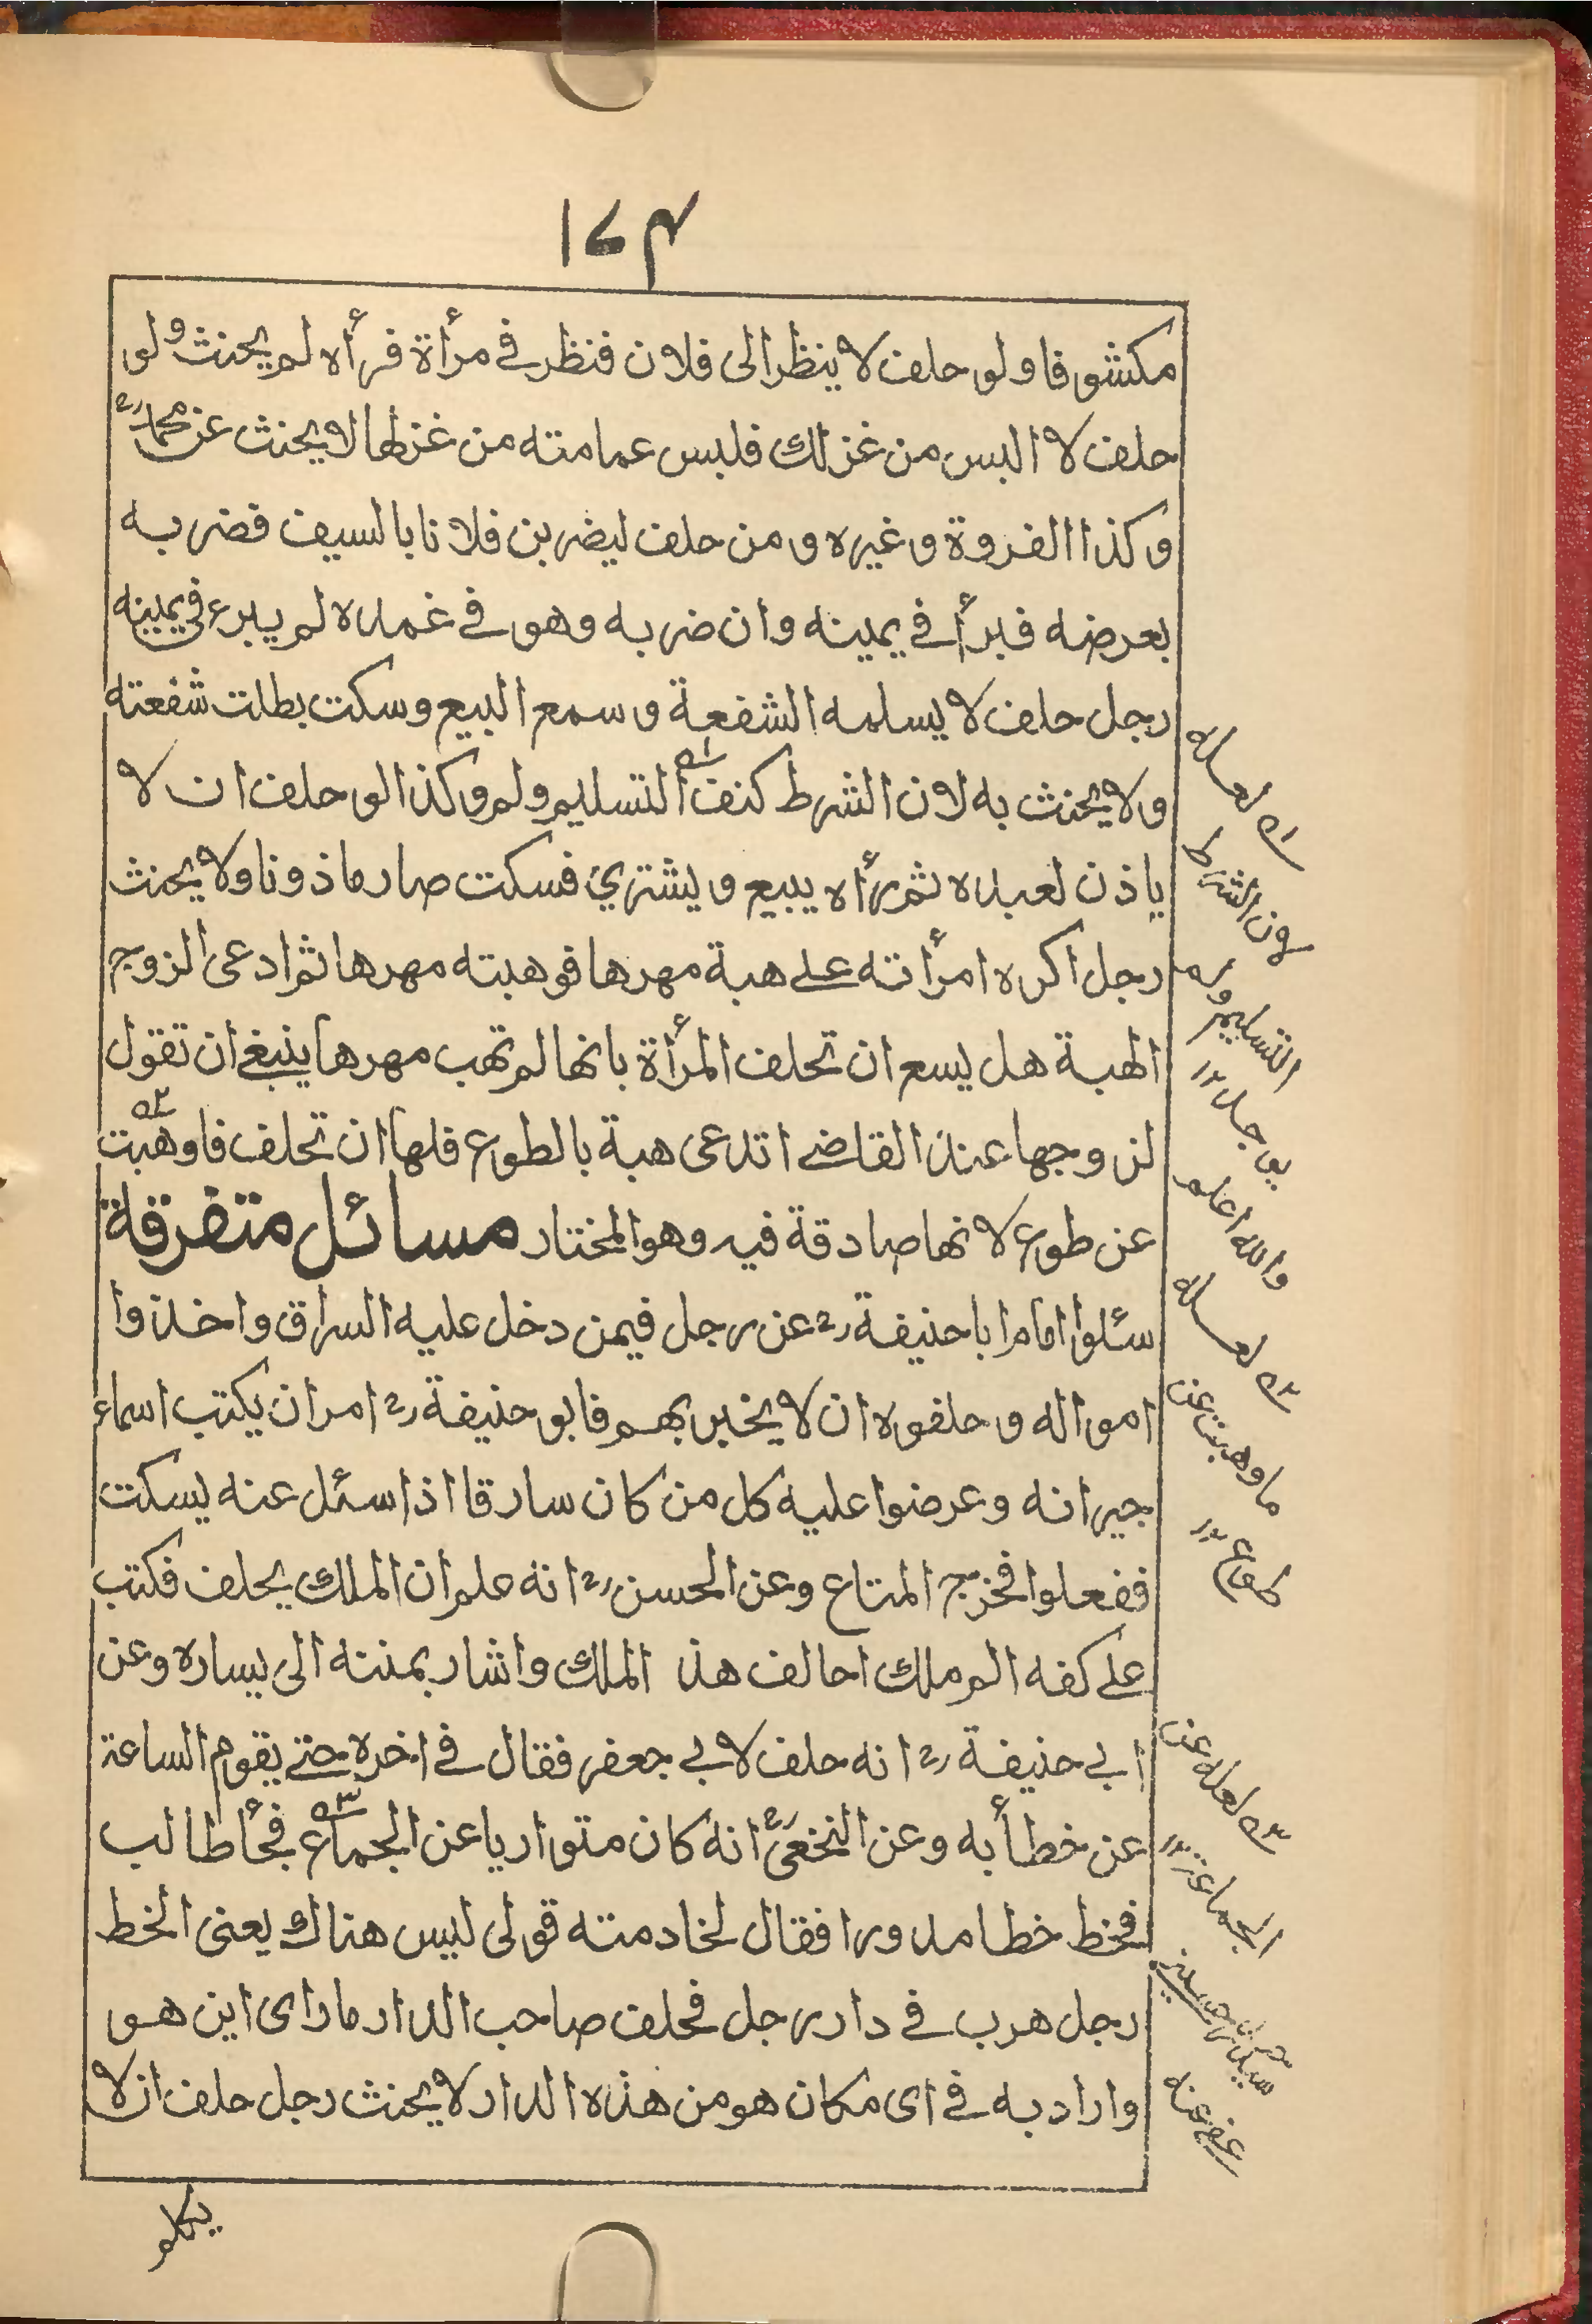 ١٧٤
مكشوفا ولو حلف لا ينظر الى فلان فنظر في مرأة فرأه لم يحنث ولو
حلف لا البس من غزلك فلبس عمامته من غزلها لا يحنث عن محمد رح
وكذا الفروة وغيره ومن حلف ليضربن فلانا بالسيف فضربه
بعرضه فبرأ في يمينه وان ضربه وهو في غمده لم يبرء في يمينه
رجل حلف لا يسلمه الشفعة وسمع البيع وسكت بطلت شفعته
ولا يحنث به لان الشرط كنف التسليم ولم وكذا لو حلف ان لا
ياذن لعبده ثم رأه يبيع ويشتري فسكت صار ماذونا ولا يحنث
رجل اكره امرأته على هبة مهرها فوهبته مهرها ثم ادعى الزوج
الهبة هل يسع ان تحلف المرأة بانها لم تهب مهرها ينبغي ان تقول
لزوجها عند القاضي اتدعى هبة بالطوع فلها ان تحلف فاوهبت
عن طوع لانها صادقة فيه وهو المختار مسائل متفرقة
سئلوا امام ابا حنيفة رح عن رجل فيمن دخل عليه السراق واخذوا
امواله وحلفوه ان لا يخبر بهم فابو حنيفة رح امر ان يكتب اسماء
جيرانه وعرضوا عليه كل من كان سارقا اذا سئل عنه يسكت
ففعلوا فخرج المتاع وعن الحسن رح انه علم ان الملك يحلف فكتب
على كفه الم ملك احالف هذ الملك واشار بمنته الى يساره وعن
ابي حنيفة رح انه حلف لابي جعفر فقال في اخره حتى يقوم الساعة
عن خطأ به وعن النخعي انه كان متواريا عن الجماع فجأ طالب
فخط خطا مدورا فقال لخادمته قولى ليس هناك يعنى الخط
رجل هرب في دار رجل فحلف صاحب الدار ما راى اين هو
واراد به في اى مكان هو من هذه الدار لا يحنث رجل حلف ان لا
يكلم
١ه لعله
لان الشرط
التسليم ولم
يوجد ١٢
والله اعلم
٢ه لعله
ما وهبت عن
طوع ١٢
٣ه لعله عن
الجماعة ١٢
عفي عنه